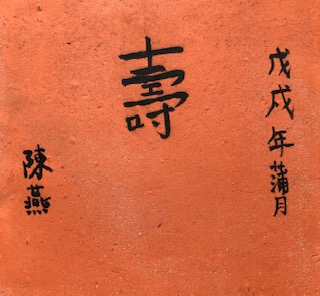 戊戌年蒲月
壽
陳燕